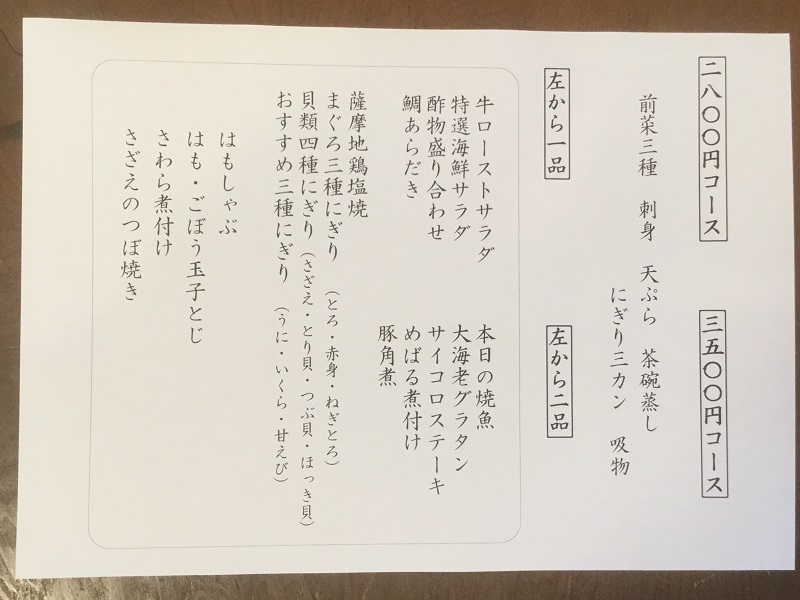 二八〇〇円コース
三五〇〇円コース
前菜三種 刺身 天ぷら 茶碗蒸し
にぎり三カン 吸物
左から一品
左から二品
牛ローストサラダ
特選海鮮サラダ
酢物盛り合わせ
鯛あらだき
本日の焼魚
大海老グラタン
サイコロステーキ
めばる煮付け
豚角煮
薩摩地鶏塩焼
まぐろ三種にぎり(とろ・赤身・ねぎとろ)
貝類四種にぎり(さざえ・とり貝・つぶ貝・ほっき貝)
おすすめ三種にぎり(うに・いくら・甘えび)
はもしゃぶ
はも・ごぼう玉子とじ
さわら煮付け
さざえのつぼ焼き